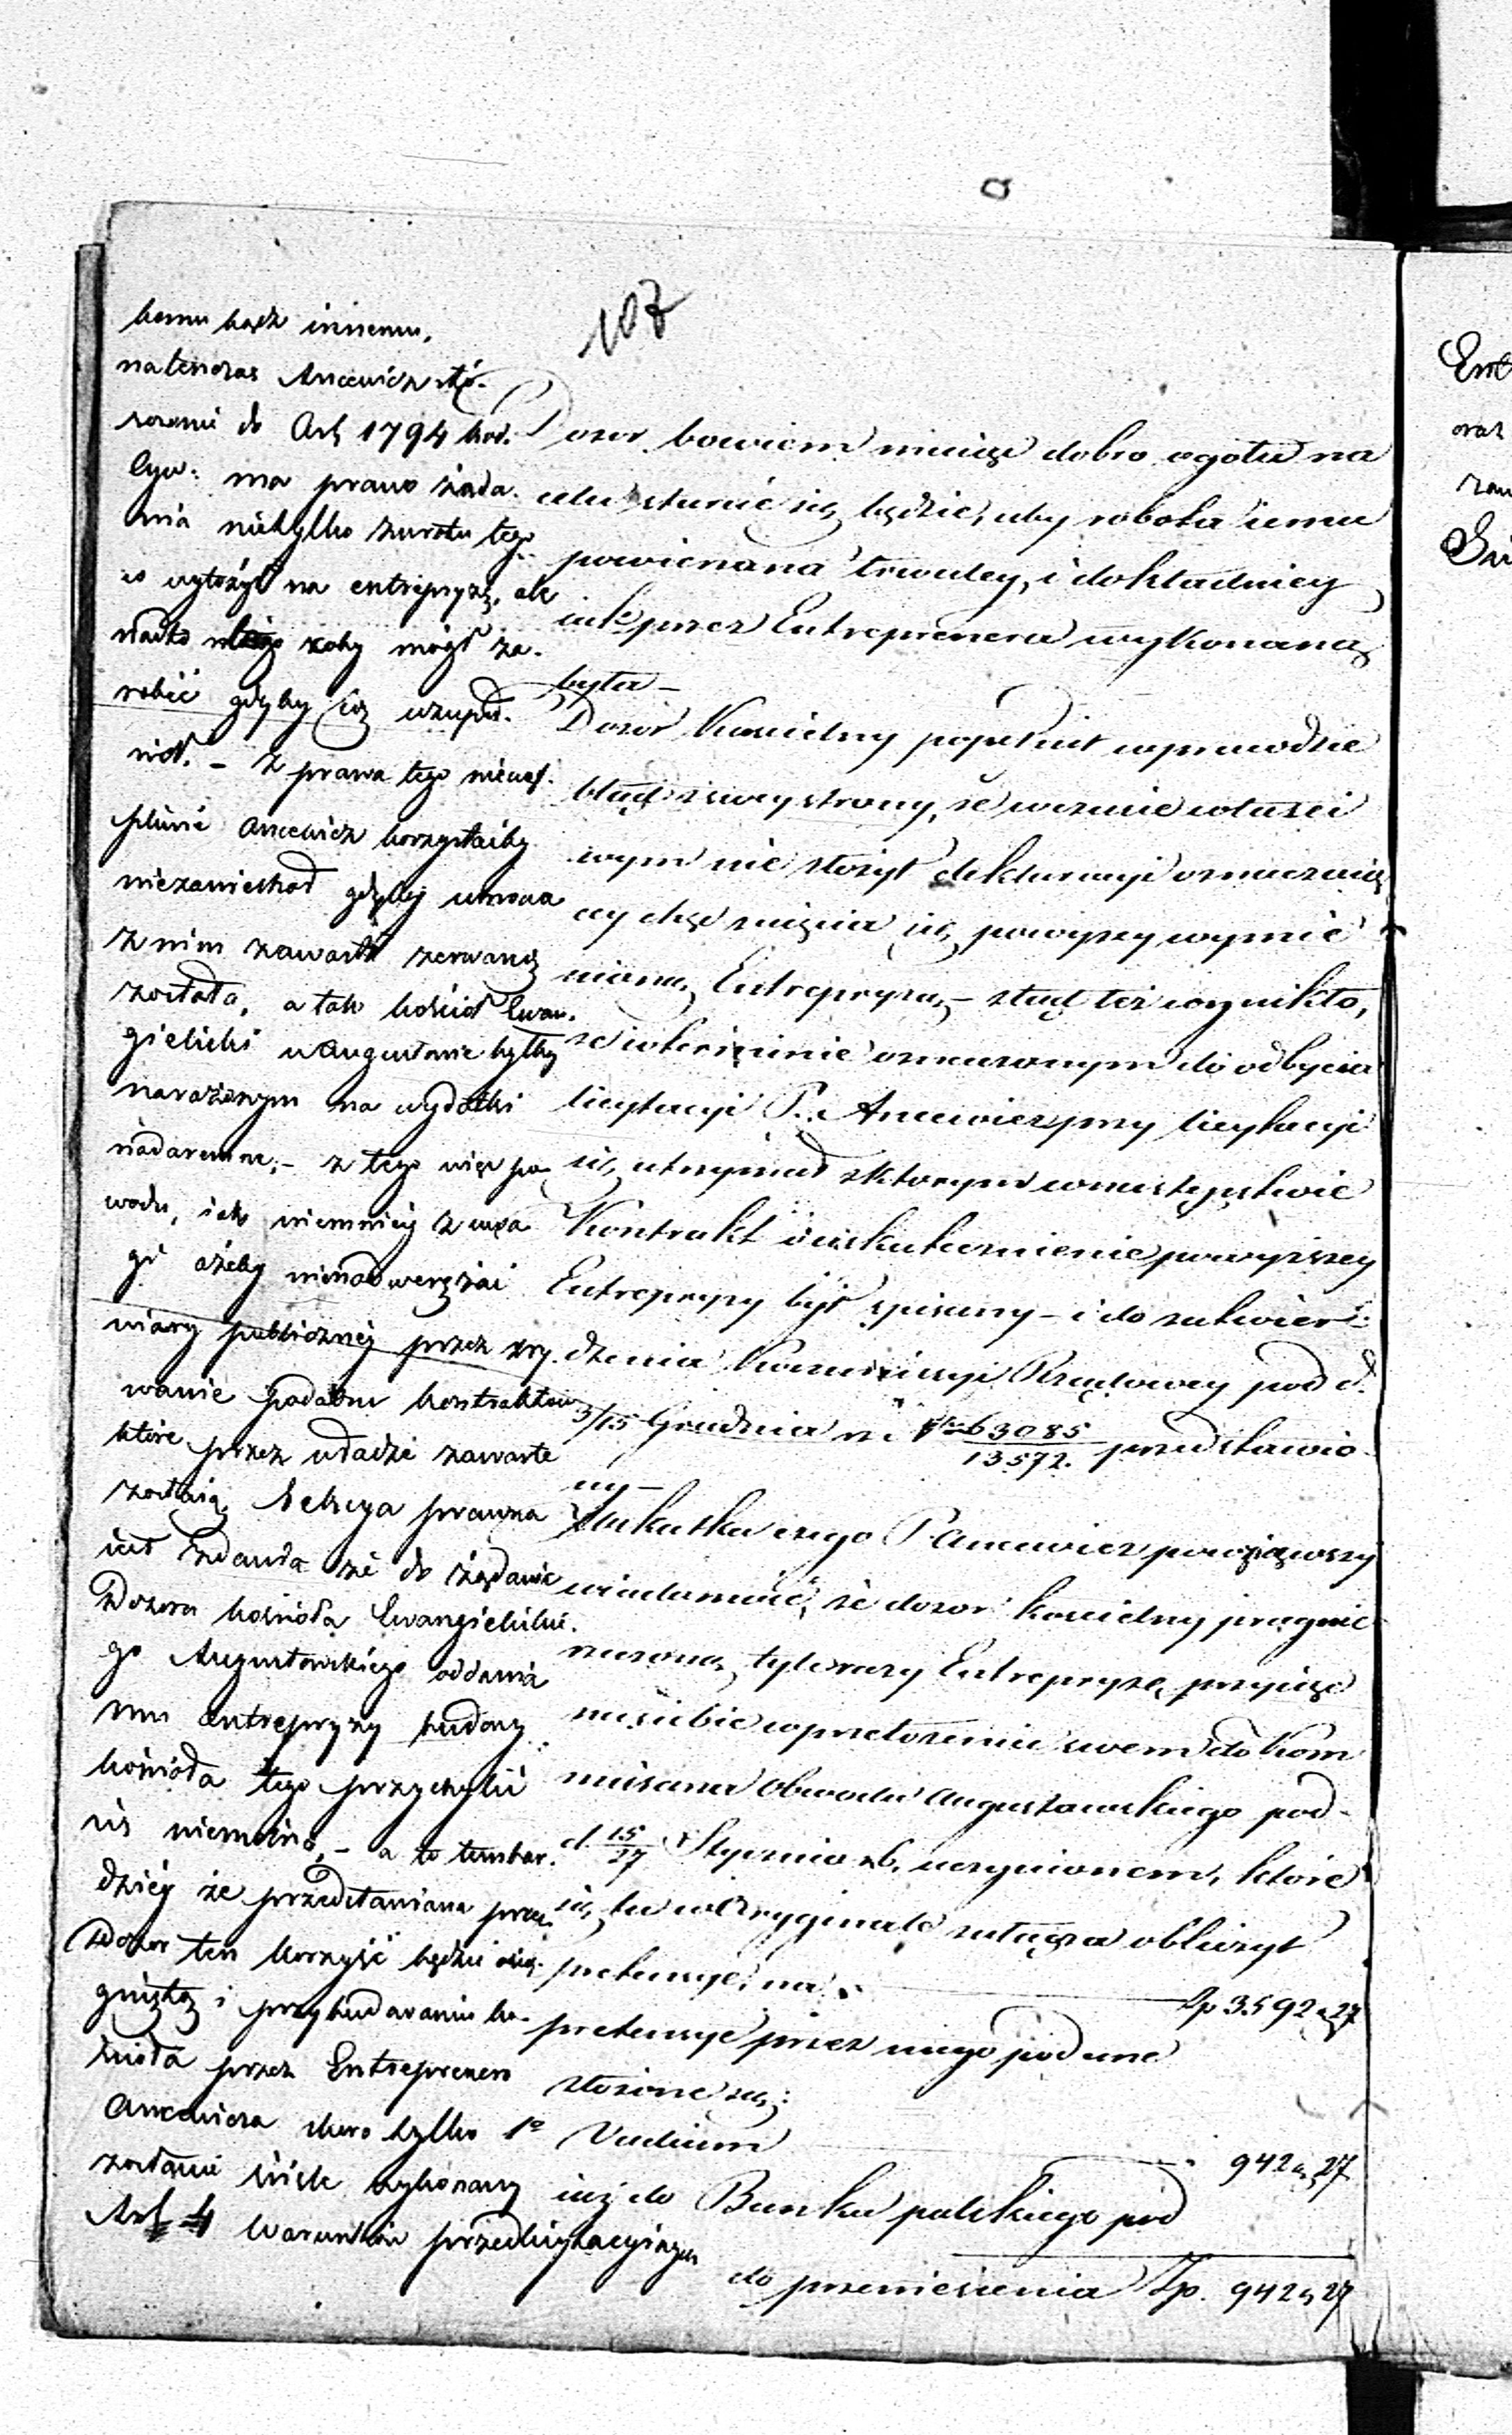 107
komu bądź innemu,
natenczas Ancewicz stó-
sownie do Art 1794 kod.
Cyw: ma prawo żąda-
nia nietylko zwrotu tego
co wyłożył na entrepryzę, ale
nadto coby mógł za-
robić gdyby ią uzupeł-
nił. – Z prawa tego niewąt-
pliwie Ancewicz korzystałby
niezaniechał gdyby umowa
z nim zawarta zerwaną
została, a tak kościół Ewan-
gielicki w Augustowie byłby
narażonym na wydatki
nadaremne; – z tego więc po-
wodu, iak niemniéj z uwa-
gi ażeby nienadwerężać
wiary publicznéj przez zry-
wanie podobne kontraktów
które przez władze zawarte
zostaią, Sekcya prawna
iest zdania że do żądania
Dozoru kościoła Ewangielickie-
go Augustowskiego oddania
mu entrepryzy budowy
kościoła tego przychylić
się niemożna, – a to tembar-
dziéj że przedstawiana przez
Dozór ten korzyść będzie osią-
gniętą i przy budowaniu ko-
ścioła przez Entreprenera
Ancewicza skoro tylko
zostanie ściśle wykonany
Art 4 warunków przedlicytacyinych
Dozor bowiem maiąc dobro ogółu na
celu starać się będzie, aby robota iemu
powierzona trwaley, i dokładniey
iak przez Entreprenera wykonaną
była –
Dozór Kościelny popełnił wprawdzie
błąd z swey strony, że w czasie właści
wym nie złożył deklaracyi oznaczaią
cy chęć wzięcia się powyżey wymie
nioną Entrepryzą – stąd też wynikło,
że w terminie oznaczonym do odbycia
licytacyi P. Ancewicz przy licytacyi
się utrzymał z którym w następstwie
Kontrakt o uskutecznienie powyższey
Entrepryzy był spisany – i do zatwier-
dzenia Kommissyi Rządowey pod d.
3/15 Grudnia r. z. No 63085/13572. przedstawio-
ny –
Skutku czego P. Ancewicz powziąwszy
wiadomość, że dozór kościelny pragnie
rzeczoną tyle razy Entrepryzę przyiąć
na siebie w przełożeniu swem do Kom
missarza Obwodu Augustowskiego pod
d. 15/27 Stycznia rb. uczynionem, które
się tu w Oryginale załącza obliczył
pretensyę na Zp 3.592 „ 27
pretensye przez niego podane
złożone są:
1o Vadium 942 „ 27
iuż do Banku polskiego pod
do przeniesienia Zp. 942 „ 27